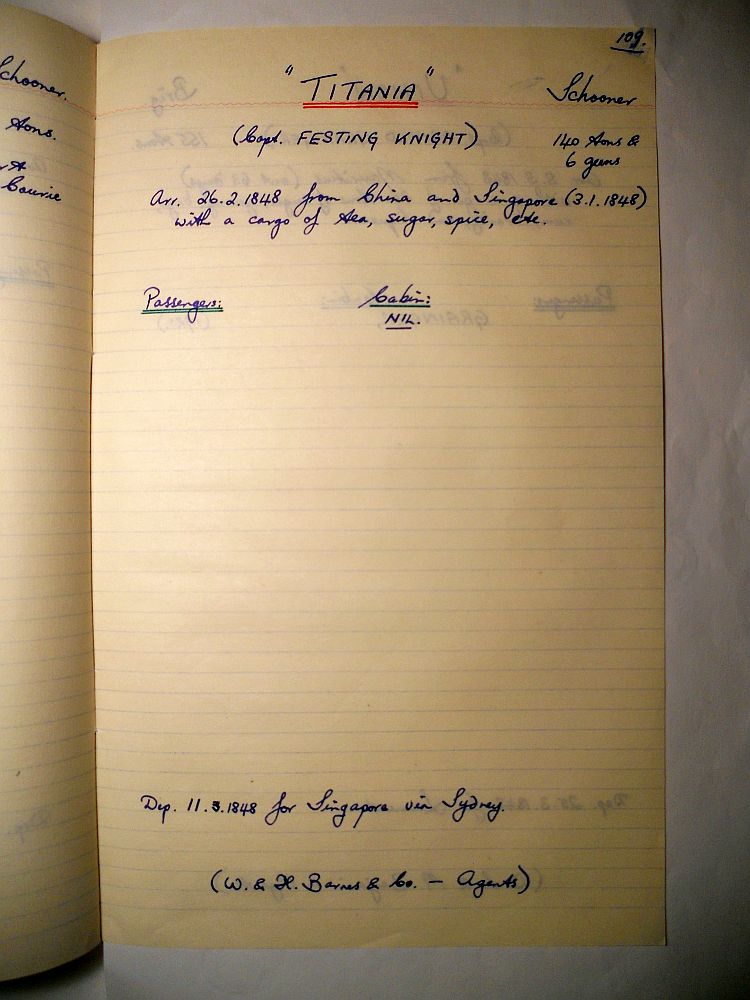 109.
"TITANIA" Schooner
(Capt. FESTING KNIGHT) 140 tons &
6 guns
Arr. 26.2.1848 from China and Singapore (3.1.1848)
with a cargo of tea, sugar, spice, etc.
Passengers: Cabin:
NIL.
Dep. 11.3.1848 for Singapore via Sydney.
(W. & H. Barnes & Co. – Agents)
Schooner.
tons.
Courie